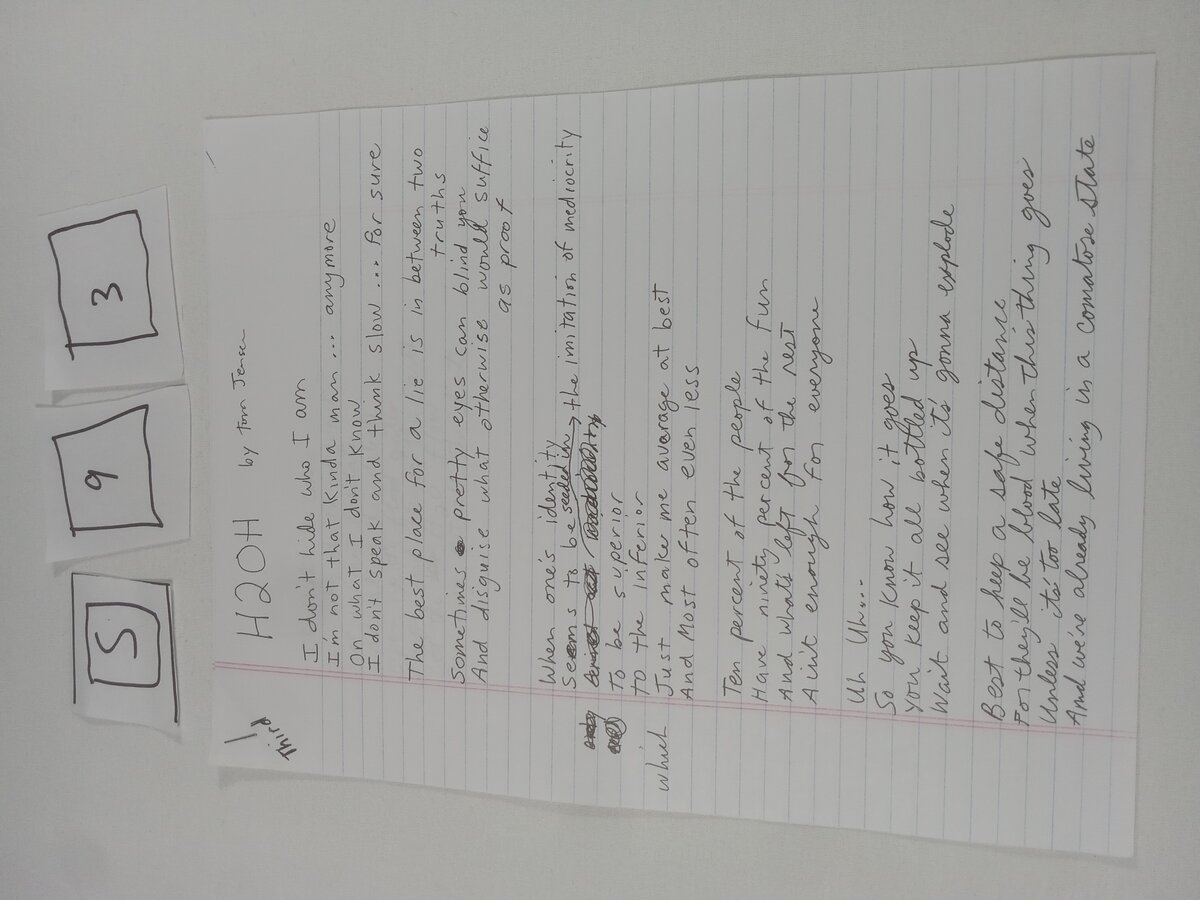 S
9
3
1
Third
H2OH by Tom Jensen
I don't hide who I am
I'm not that kinda man... anymore
On what I don't know
I don't speak and think slow... for sure
The best place for a lie is in between two
truths
Sometimes pretty eyes can blind you
And disguise what otherwise would suffice
as proof
When one's identity
Seems to be seeded in → the limitation of mediocrity
To be superior
to the inferior
which Just make me average at best
And Most often even less
Ten percent of the people
Have ninety percent of the fun
And what's left for the rest
Ain't enough for everyone
Uh Uh...
So you know how it goes
You keep it all bottled up
Wait and see when it's gonna explode
Best to keep a safe distance
For they'll be blood when this thing goes
Unless it's too late
And we're already living in a comatose state